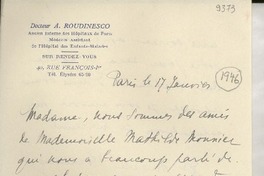 9373
Docteur A. ROUDINESCO
Ancien Interne des Hôpitaux de Paris
Médecin Assistant
de l'Hôpital des Enfants-Malades
SUR RENDEZ-VOUS
40, RUE FRANÇOIS-Ier
Tél. Élysées
Paris le 17 Janvier
1946
Madame, nous sommes des amis
de Mademoiselle Mathilde Monnier
qui nous a beaucoup parlé de